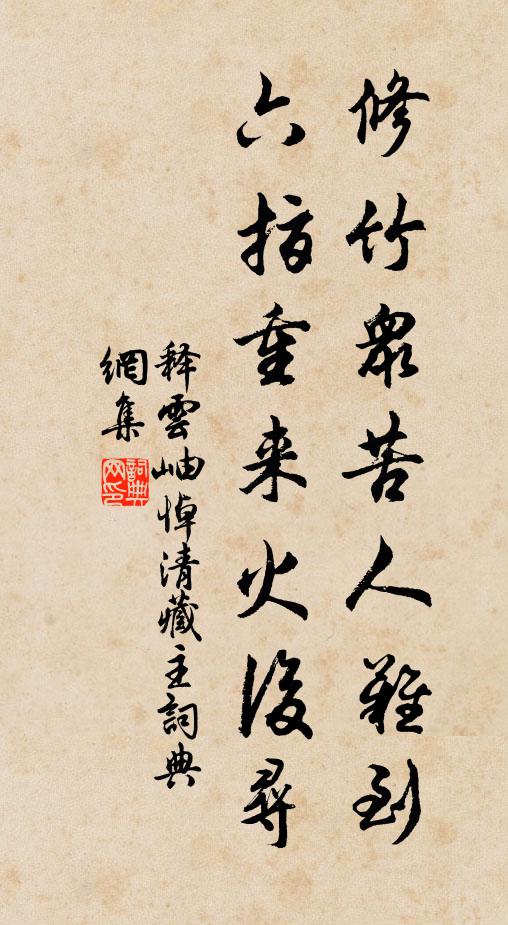 修竹衆苦人難到
六指重来火後尋
释雲岫悼清藏主詞典
網集
詞典
网印